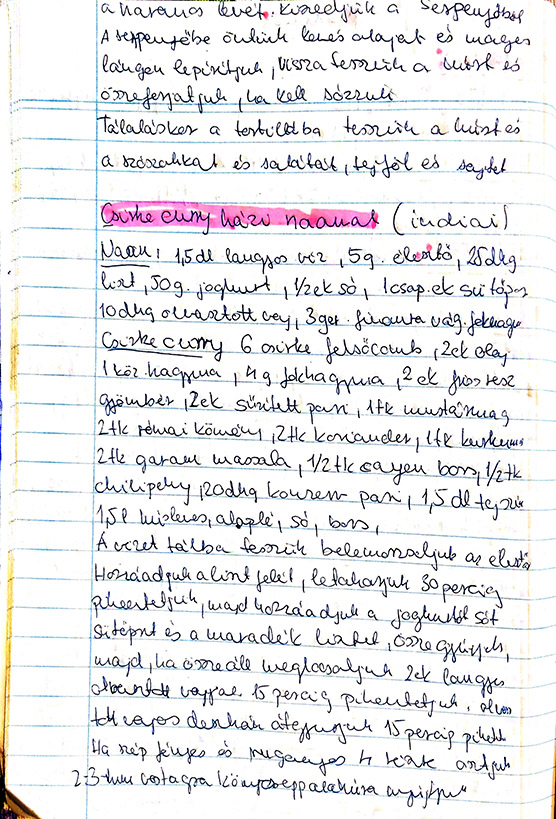 a narancs levét. kiszedjük a serpenyőből
A serpenyőbe öntünk kevés olajat és magas
lángon lepirítjuk, vissza tesszük a húst és
összeforgatjuk, ha kell sózzuk
Tálaláskor a tortillába tesszük a húst és
a szószokat és salátát, tejföl és sajtot
Csirke curry házi naannal (indiai)
Naan: 1,5 dl langyos víz, 5 g. élesztő, 25 dkg
liszt, 50 g. joghurt, 1/2 ek só, 1 csap. ek sütőpor
10 dkg olvasztott vaj, 3 ger. finomra vág. fokhagy
Csirke curry 6 csirke felsőcomb, 2 ek olaj
1 köz. hagyma, 4 g fokhagyma, 2 ek friss resz
gyömbér, 2 ek sűrített pari, 1 tk mustármag
2 tk római kömény, 2 tk koriander, 1 tk kurkuma
2 tk garam massala, 1/2 tk cayen bors, 1/2 tk
chilipehy, 20 dkg konzerv pari, 1,5 dl tejszín
1,5 l húsleves, alaplé, só, bors,
A vizet tálba tesszük belemorzsoljuk az élesztő
Hozzáadjuk a liszt felét, letakarjuk 30 percig
pihentetjük, majd hozzáadjuk a joghurtot sót
sütőport és a maradék lisztet, összegyúrjuk,
majd, ha összeáll meglocsoljuk 2 ek langyos
olvasztott vajjal. 15 percig pihentetjük. olvasz
tott vajos deszkán átgyúrjuk 15 percig pihent
Ha szép fényes és rugalmas 4 részre osztjuk
2-3 mm vastagra könycsepp alakúra nyújtjuk